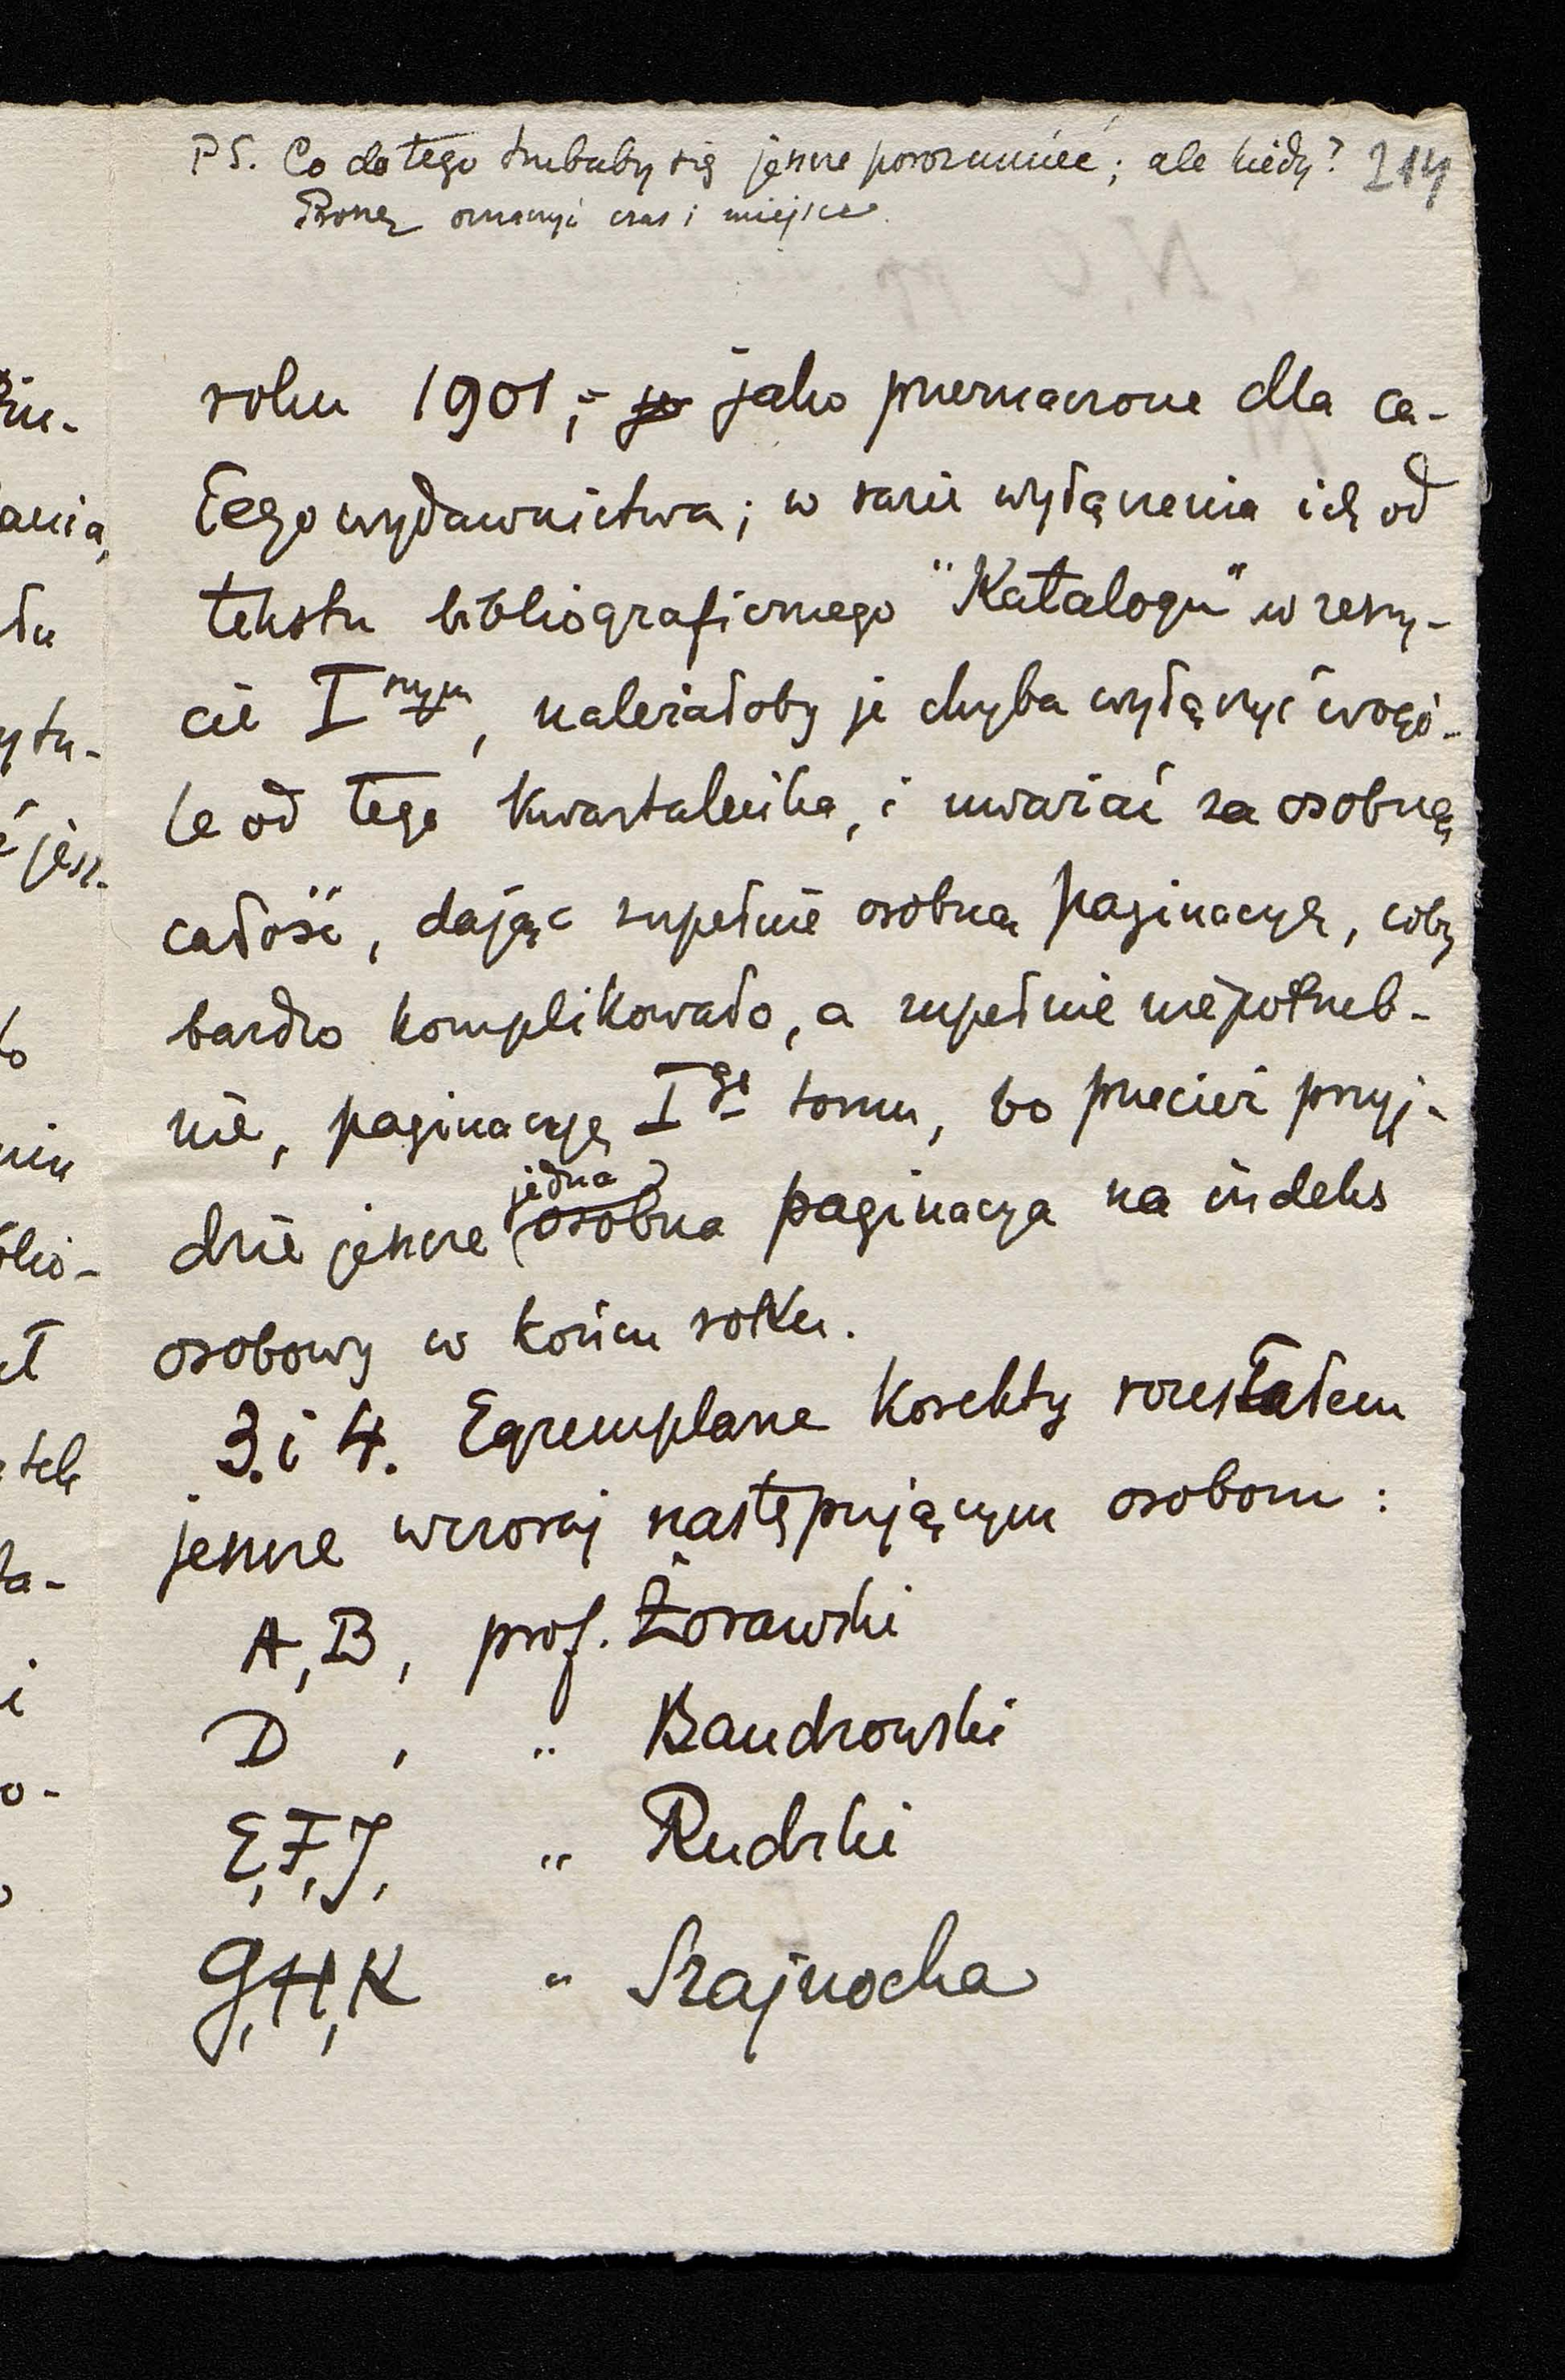 PS. Co do tego trzebaby się jeszcze porozumieć; ale kiedy? 214
Proszę oznaczyć czas i miejsce.
roku 1901; – je jako przeznaczone dla ca-
łego wydawnictwa; w razie wyłączenia ich od
tekstu bibliograficznego "Katalogu" w zeszy-
cie I szym, należałoby je chyba wyłączyć wogó-
le od tego kwartalnika, i uważać za osobną
całość, dając zupełnie osobną paginacyę, coby
bardzo komplikowało, a zupełnie niepotrzeb-
nie, paginacyę I go tomu, bo przecież przyj-
dzie jeszcze jedna osobna paginacya na indeks
osobowy w końcu rokku.
3. i 4. Egzemplarze korekty rozesłałem
jeszcze wczoraj następującym osobom:
A, B, prof. Żorawski
D , „ Bandrowski
E, F, J, „ Rudzki
G, H, K „ Szajnocha
żu-
ania,
łu
ytu-
jesz-
ło
niu
blio-
ła-
i
o-